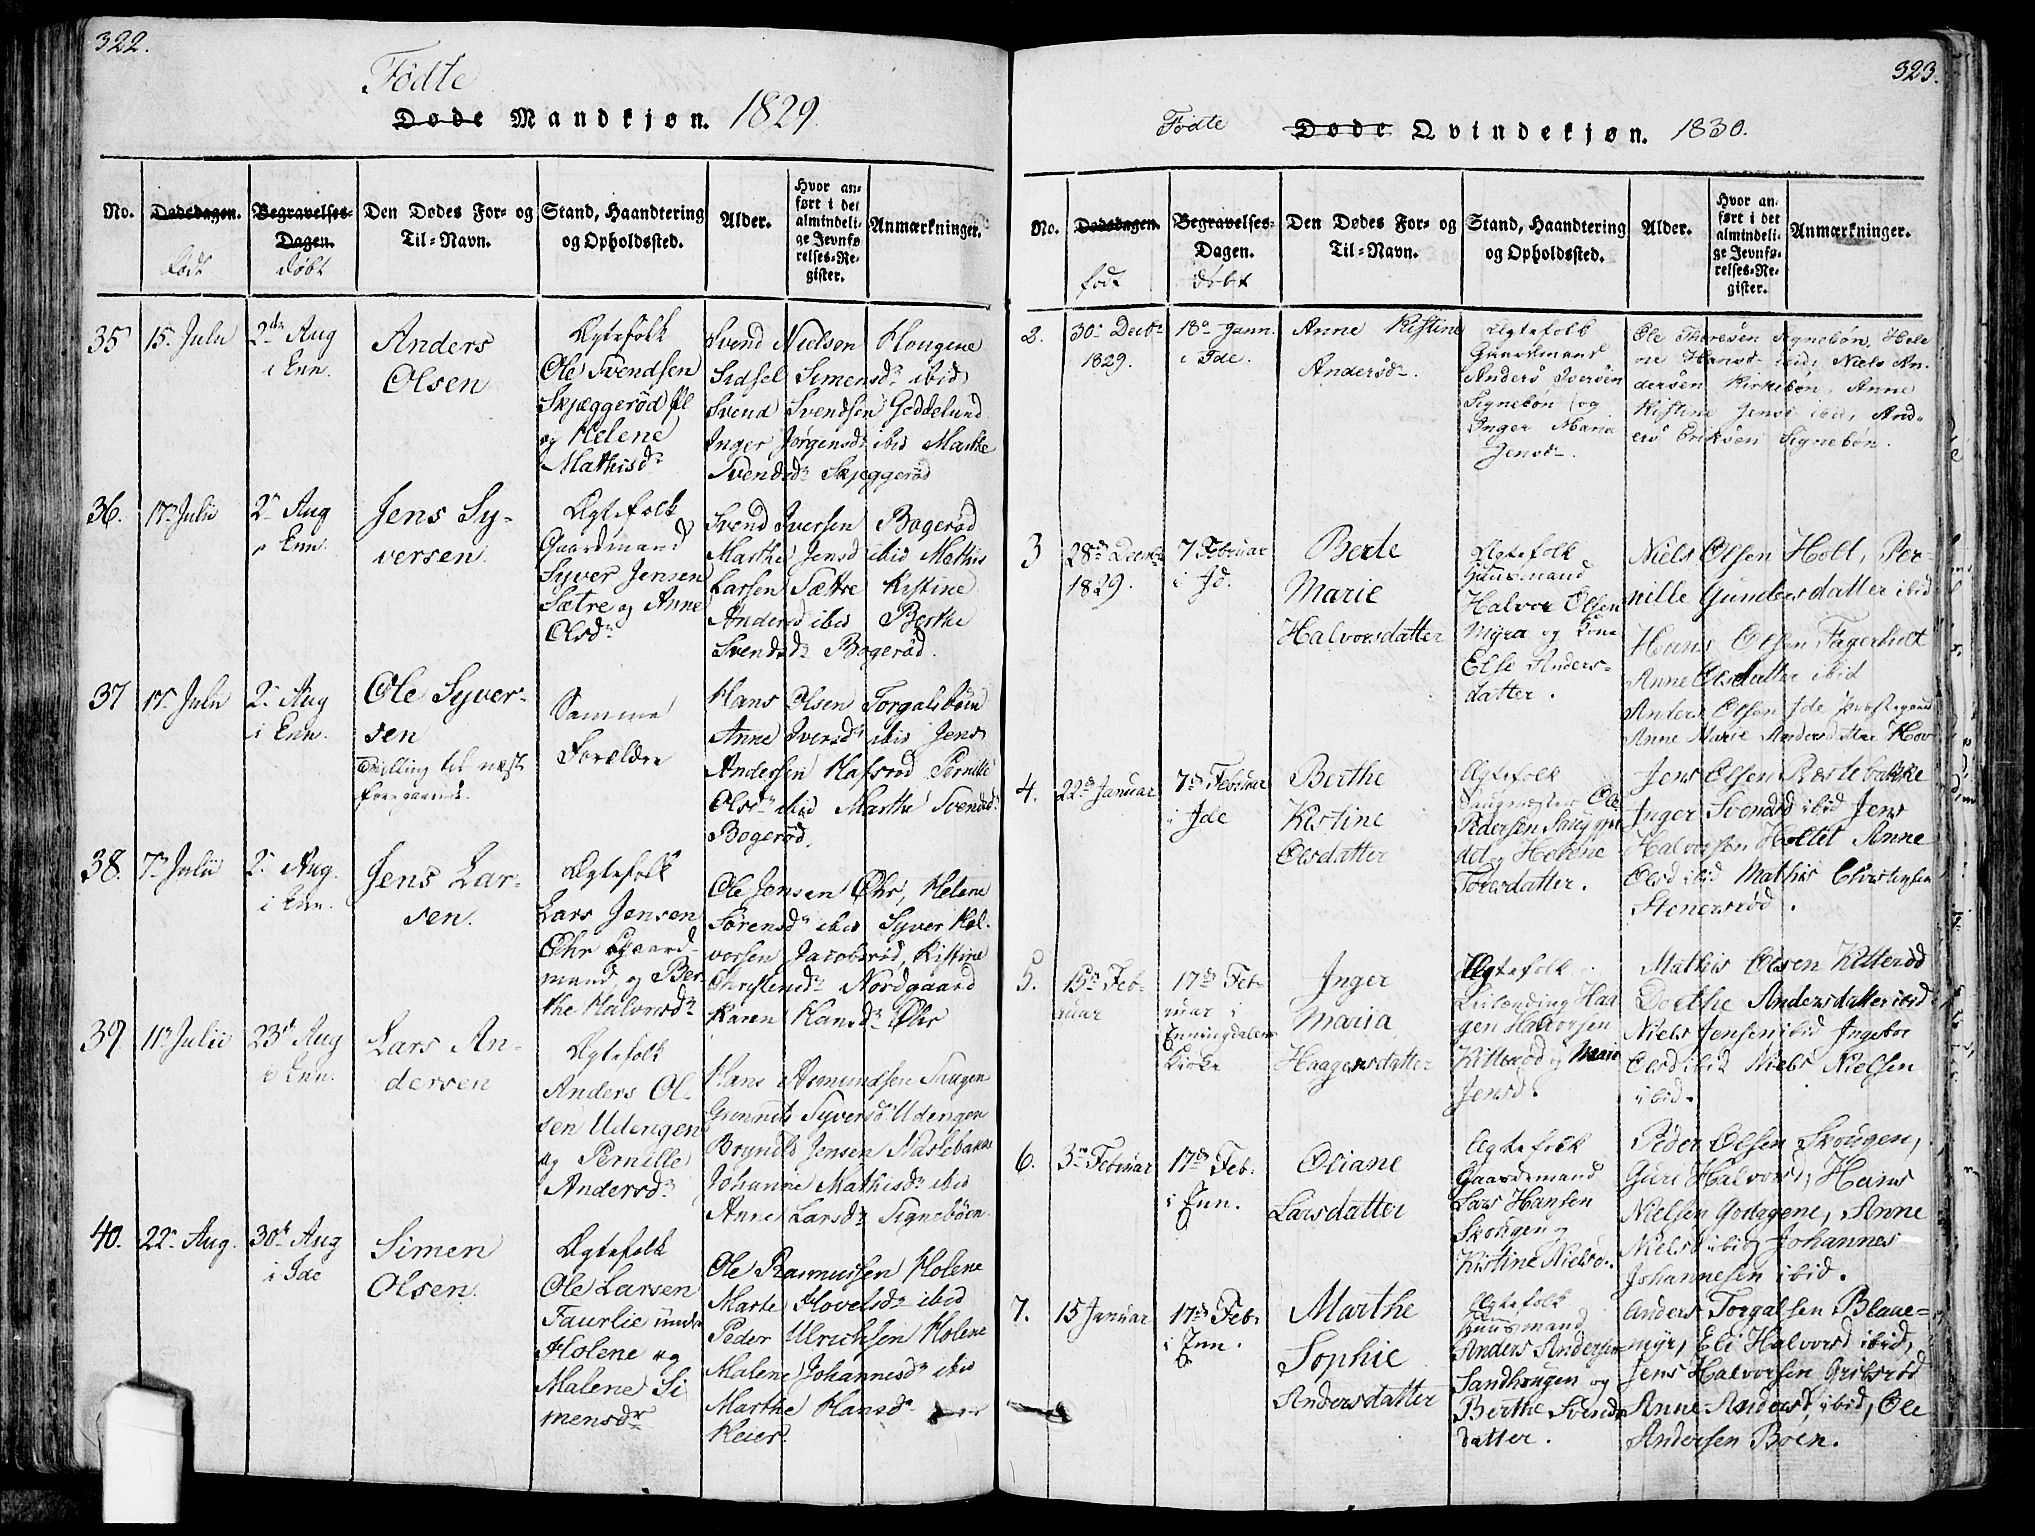 322.
Fødte
Døde Mandkjøn. 1829.
No.
Dødsdagen.
født
Begravelses-
Dagen.
døbt
Den Dødes For- og
Til-Navn.
Stand, Haandtering
og Opholdssted.
Alder.
Hvor an-
ført i det
almindeli-
ge Jevnfø-
relses-Re-
gister.
Anmærkninger.
35
15. Julii
2den Aug
i Enn.
Anders
Olsen
Ægtefolk
Ole Svendsen
Skjæggerød
og Helene
Mathisdr
Svend Nielsen Hougene
Sidsel Simensdr ibid
Svend Svendsen Geddelund
Inger Jørgensdr ibid Marthe
Svendsdr Skjeggerød
36.
17n Julii
2n Aug
i Enn
Jens Sy-
versen.
Ægtefolk
Gaardmand
Syver Jensen
Sætre og Anne
Olsdr
Svend Iversen Bogerød
Marthe Jensd ibid Mathis
Larsen Sættre Kistine
Andersd ibid Berthe
Svendsdr Bogerød.
37
17n Julii
2n Aug
i Enn.
Ole Syver-
sen
Tvilling til næst
foregaaende.
Samme
Forældre
Hans Olsen Torgalsbøin
Anne Iversdr ibid Jens
Andersen Hafsrød Pernille
Olsdr ibid Marthe Svendsdr
Bogerød.
38.
7n Julii
2n Aug.
i Enn.
Jens Lar-
sen.
Ægtefolk
Lars Jensen
Øhr Gaard-
mand og Ber-
the Halvorsdr
Ole Jensen Øhr, Helene
Sørensdr ibid Syver Hal-
vorsen Jacobsrød, Kistine
Christensdr Nordgaard
Karen Hansdr Øhr
39.
11n Julii
23d Aug
i Enn.
Lars An-
dersen
Ægtefolk
Anders Ol-
sen Udengen
og Pernille
Andersdr
Hans Asmundsen Saugen
Gunnild Syversdr Udengen
Brynild Jensen Næstebakke
Johanne Mathisdr ibid
Anne Larsdr Signebøen
40.
22n Aug.
30te Aug
i Ide
Simen
Olsen.
Ægtefolk
Ole Larsen
Faurlie under
Holene og
Malene Si
mensdr
Ole Rasmussen Holene
Marte Hovelsdr ibid
Peder Ulrichsen Holene
Malene Johannesdr ibid
Marthe Hansdr
Heier.
323.
Fødte Døde Qvindekjøn. 1830.
No.
Dødsdagen.
født
Begravelses-
Dagen.
døbt
Den Dødes For- og
Til-Navn.
Stand, Haandtering
og Opholdssted.
Alder.
Hvor an-
ført i det
almindeli-
ge Jevnfø-
relses-Re-
gister.
Anmærkninger.
2.
30n Decbr
1829.
18n Jann.
i Ide.
Anne Kistine
Andersdr.
Ægtefolk
Gaardmand
Anders Iversen
Signebøn og
Inger Maria
Jensdr.
Ole Theresen Signebøn, Hele
ne Hansd ibid, Niels An-
dersen Kirkebøn, Anne
Kistine Jensd ibid, And-
ers Eriksen Signebøn.
3
28de Decbr
1829.
7 Februar
i Id.
Berte
Marie
Halvorsdatter
Ægtefolk
Huusmand
Halvor Olsen
Myra og Kone
Else Anders-
datter.
Niels Olsen Holt, Per-
nille Gundersdatter ibid
Hans Olsen Fagerholt
Anne Olsdatter ibid
Anders Olsen Ide Præstegaard
Anne Marie Andersdatter Hov
4.
22de Januar
7de Februar
i Ide
Berthe
Kistine
Olsdatter
Ægtefolk
Saugmester Ole
Pedersen
og Helene
Toresdatter.
Jens Olsen Næstebakke
Inger Svendsd ibid Jens
Halvorsen Holtet Anne
Olsd ibid Mathis Christensen
Stenersrød.
5.
15de Feb-
ruar
17de Feb-
ruar i
Enningdalens
Kirke
Inger
Maria
Haagensdatter
Ægtefolk
Leilænding Haa
gen Halvorsen
Kitterød og Marie
Jensd.
Mathis Olsen Kitterød
Dorthe Andersdatter ibid
Niels Jensen ibid Ingebor
Olsd ibid Niels Nielsen
ibid.
6.
3n Februar
17de Feb.
i Enn.
Oliane
Larsdatter
Ægtefolk
Gaardemand
Lars Hansen
Skougen og
Kistine Nielsd.
Peder Olsen Skougen,
Guri Halvorsd, Hans
Nielsen Godggene, Anne
Nielsd ibid Johannes
Johannesen ibid.
7.
15 Januar
17de Feb.
i Enn.
Marthe
Sophie
Andersdatter
Ægtefolk
Huusmand
Anders Andersen
Sandhougen og
Berthe Svends
datter.
Anders Torgalsen Blaue-
myr, Eli Halvorsd ibid,
Jens Halvorsen Gribsrød
Anne Andersd, ibid, Ole
Andersen Boen.